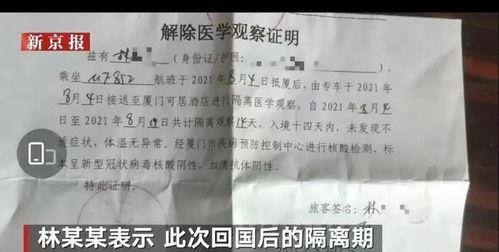 新京报
解除医学观察证明
兹有 林 (身份证/护照:
乘坐 航班于2021年8月4日抵厦后,由专车于2021年
8月4日接送至厦门可居酒店进行隔离医学观察,自2021年8月4
日至2021年8月 日共计隔离观察14天,入境十四天内,未发现不
适症状,体温无异常。经厦门市疾病预防控制中心进行核酸检测,标
本呈新型冠状病毒核酸阴性,血清抗体阴性。
特此证明。
旅客签名: 林
林某某表示 此次回国后的隔离期